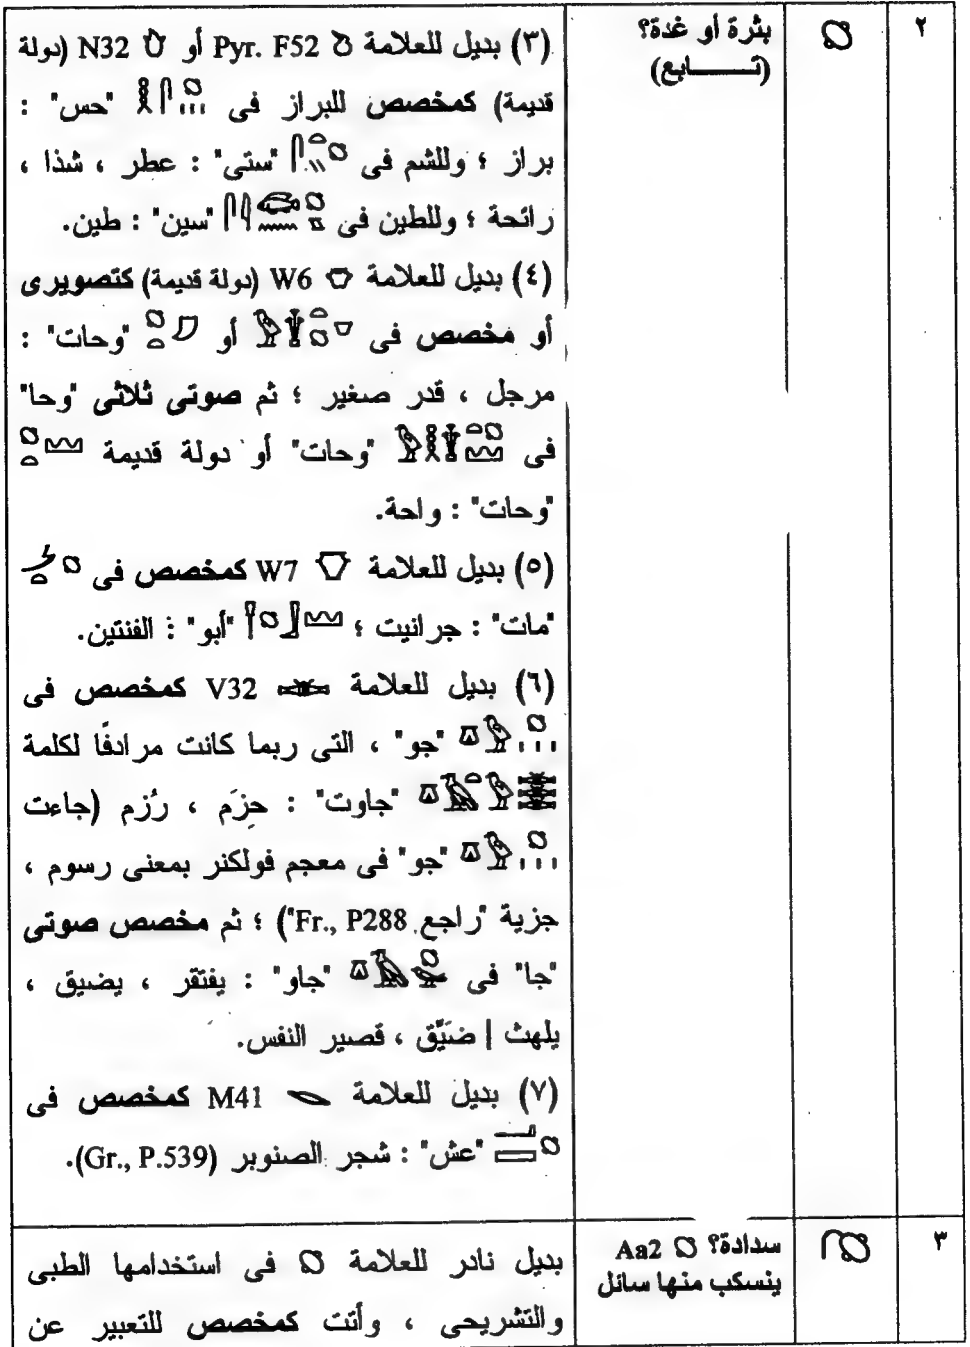 ٢
بثرة أو غدة؟
(تـــــــابع)
(٣) بديل للعلامة Pyr. F52 أو N32 (دولة
قديمة) كمخصص للبراز فى "حس" :
براز ؛ وللشم فى "ستى" : عطر ، شذا ،
رائحة ؛ وللطين فى "سين" : طين.
(٤) بديل للعلامة W6 (دولة قديمة) كتصويرى
أو مخصص فى أو "وحات" :
مرجل ، قدر صغير ؛ ثم صوتى ثلاثى "وحا"
فى "وحات" أو دولة قديمة
"وحات" : واحة.
(٥) بديل للعلامة W7 كمخصص فى
"مات" : جرانيت ؛ "أبو" : الفنتين.
(٦) بديل للعلامة V32 كمخصص فى
"جو" ، التى ربما كانت مرادفًا لكلمة
"جاوت" : حزَم ، رُزم (جاءت
"جو" فى معجم فولكنر بمعنى رسوم ،
جزية "راجع Fr., P288") ؛ ثم مخصص صوتى
"جا" فى "جاو" : يفتقر ، يضيق ،
يلهث | ضَيِّق ، قصير النفس.
(٧) بديل للعلامة M41 كمخصص فى
"عش" : شجر الصنوبر (Gr., P.539).
٣
سدادة؟ Aa2
ينسكب منها سائل
بديل نادر للعلامة فى استخدامها الطبى
والتشريحى ، وأتت كمخصص للتعبير عن